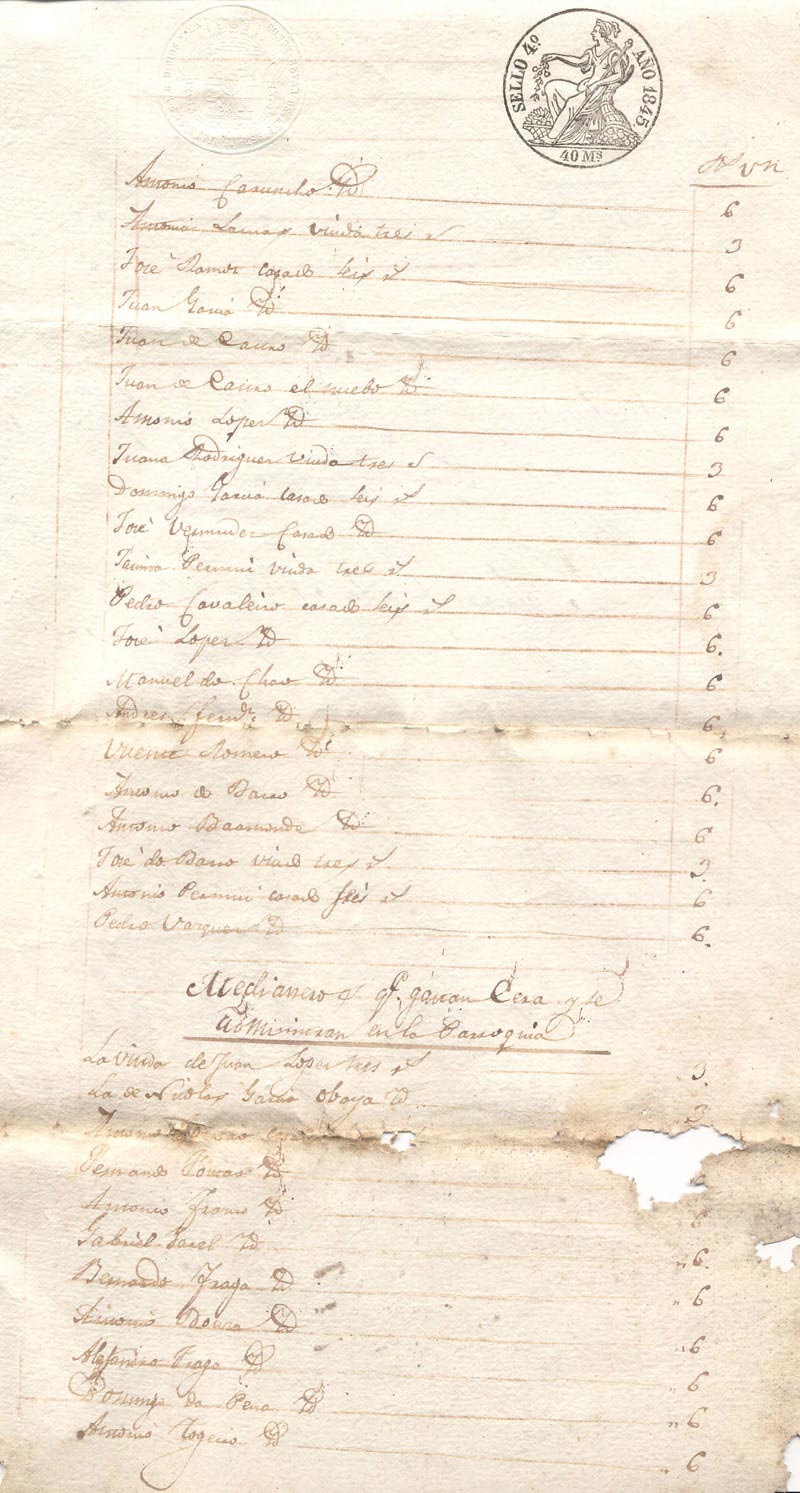 SELLO 4º AÑO 1845.
40 Ms
Rs vn
Antonio Caruncho Yd 6
Antonia Lamas viuda tres rs 3
José Ramos casado seis rs 6
Juan Garcia Yd 6
Juan de Castro Yd 6
Juan de Castro el nuebo Yd 6
Antonio Lopez Yd 6
Juana Rodriguez viuda tres rs 3
Domingo Garcia casado seis rs 6
José Vermudez Casado Yd 6
viuda tres rs 3
Pedro Cavaleiro casado seis rs 6
José Lopez Yd 6.
Manuel do Chao Yd 6
Andres Fernz. Yd 6.
Vicente Romero Yd 6
Antonio do Barro Yd 6.
Antonio Baamonde Yd 6
José do Barro viudo tres rs 3.
Antonio casado seis rs 6
Pedro Vazquez Yd 6.
Medianeros qe. gastan Cera y se
administran en la Parroquia
La viuda de Juan Lopez tres rs 3.
La de Nicolas Garcia Yd 3
Antonio
Fernando Yd
Antonio Franco Yd 6
Gabriel Yd „ 6.
Bernardo Fraga Yd „ 6
Antonio Bouza Yd „ 6
Alejandro Fraga Yd „ 6
Domingo da Pena Yd „ 6
Antonio Yd „ 6